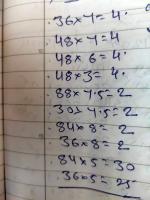 36×7=4.
48×7=4
48×6=4.
48×3=4.
88×7.5=2
30×7.5=2
84×8=2
36×8=2
84×5=30
36×5=25